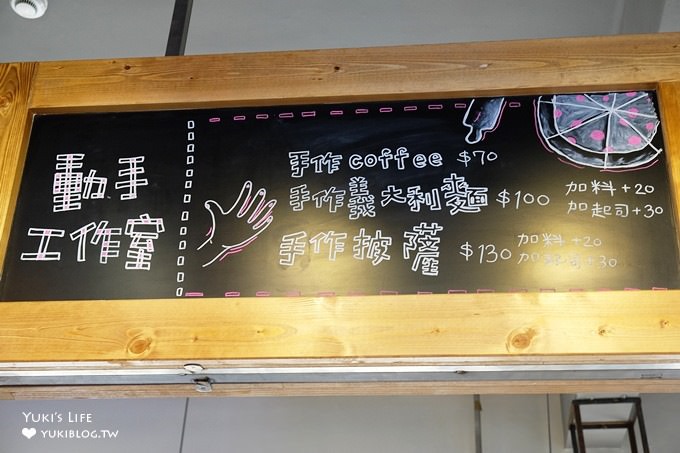 動手
工作室
手作coffee $70
手作義大利麵 $100 加料+20
加起司+30
手作披薩 $130 加料+20
加起司+30
YUKI'S LIFE
YUKIBLOG.TW